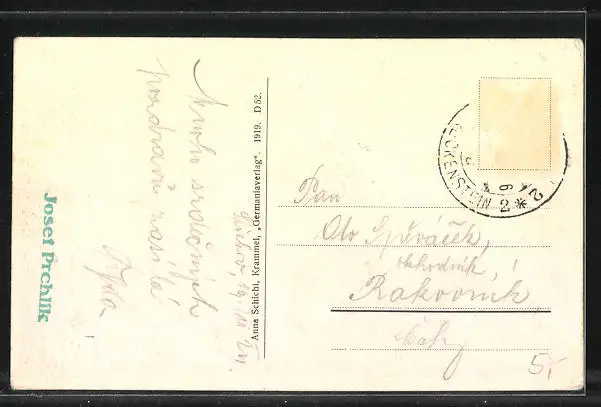 Mnoho srdečných
pozdravů zasílá
Josef Prchlík
Anna Schicht, Krammel, „Germaniaverlag“. 1919. D 52.
2 *
Pan
Oto Spěváček,
obchodník,
Rakovník
Čechy
5,-